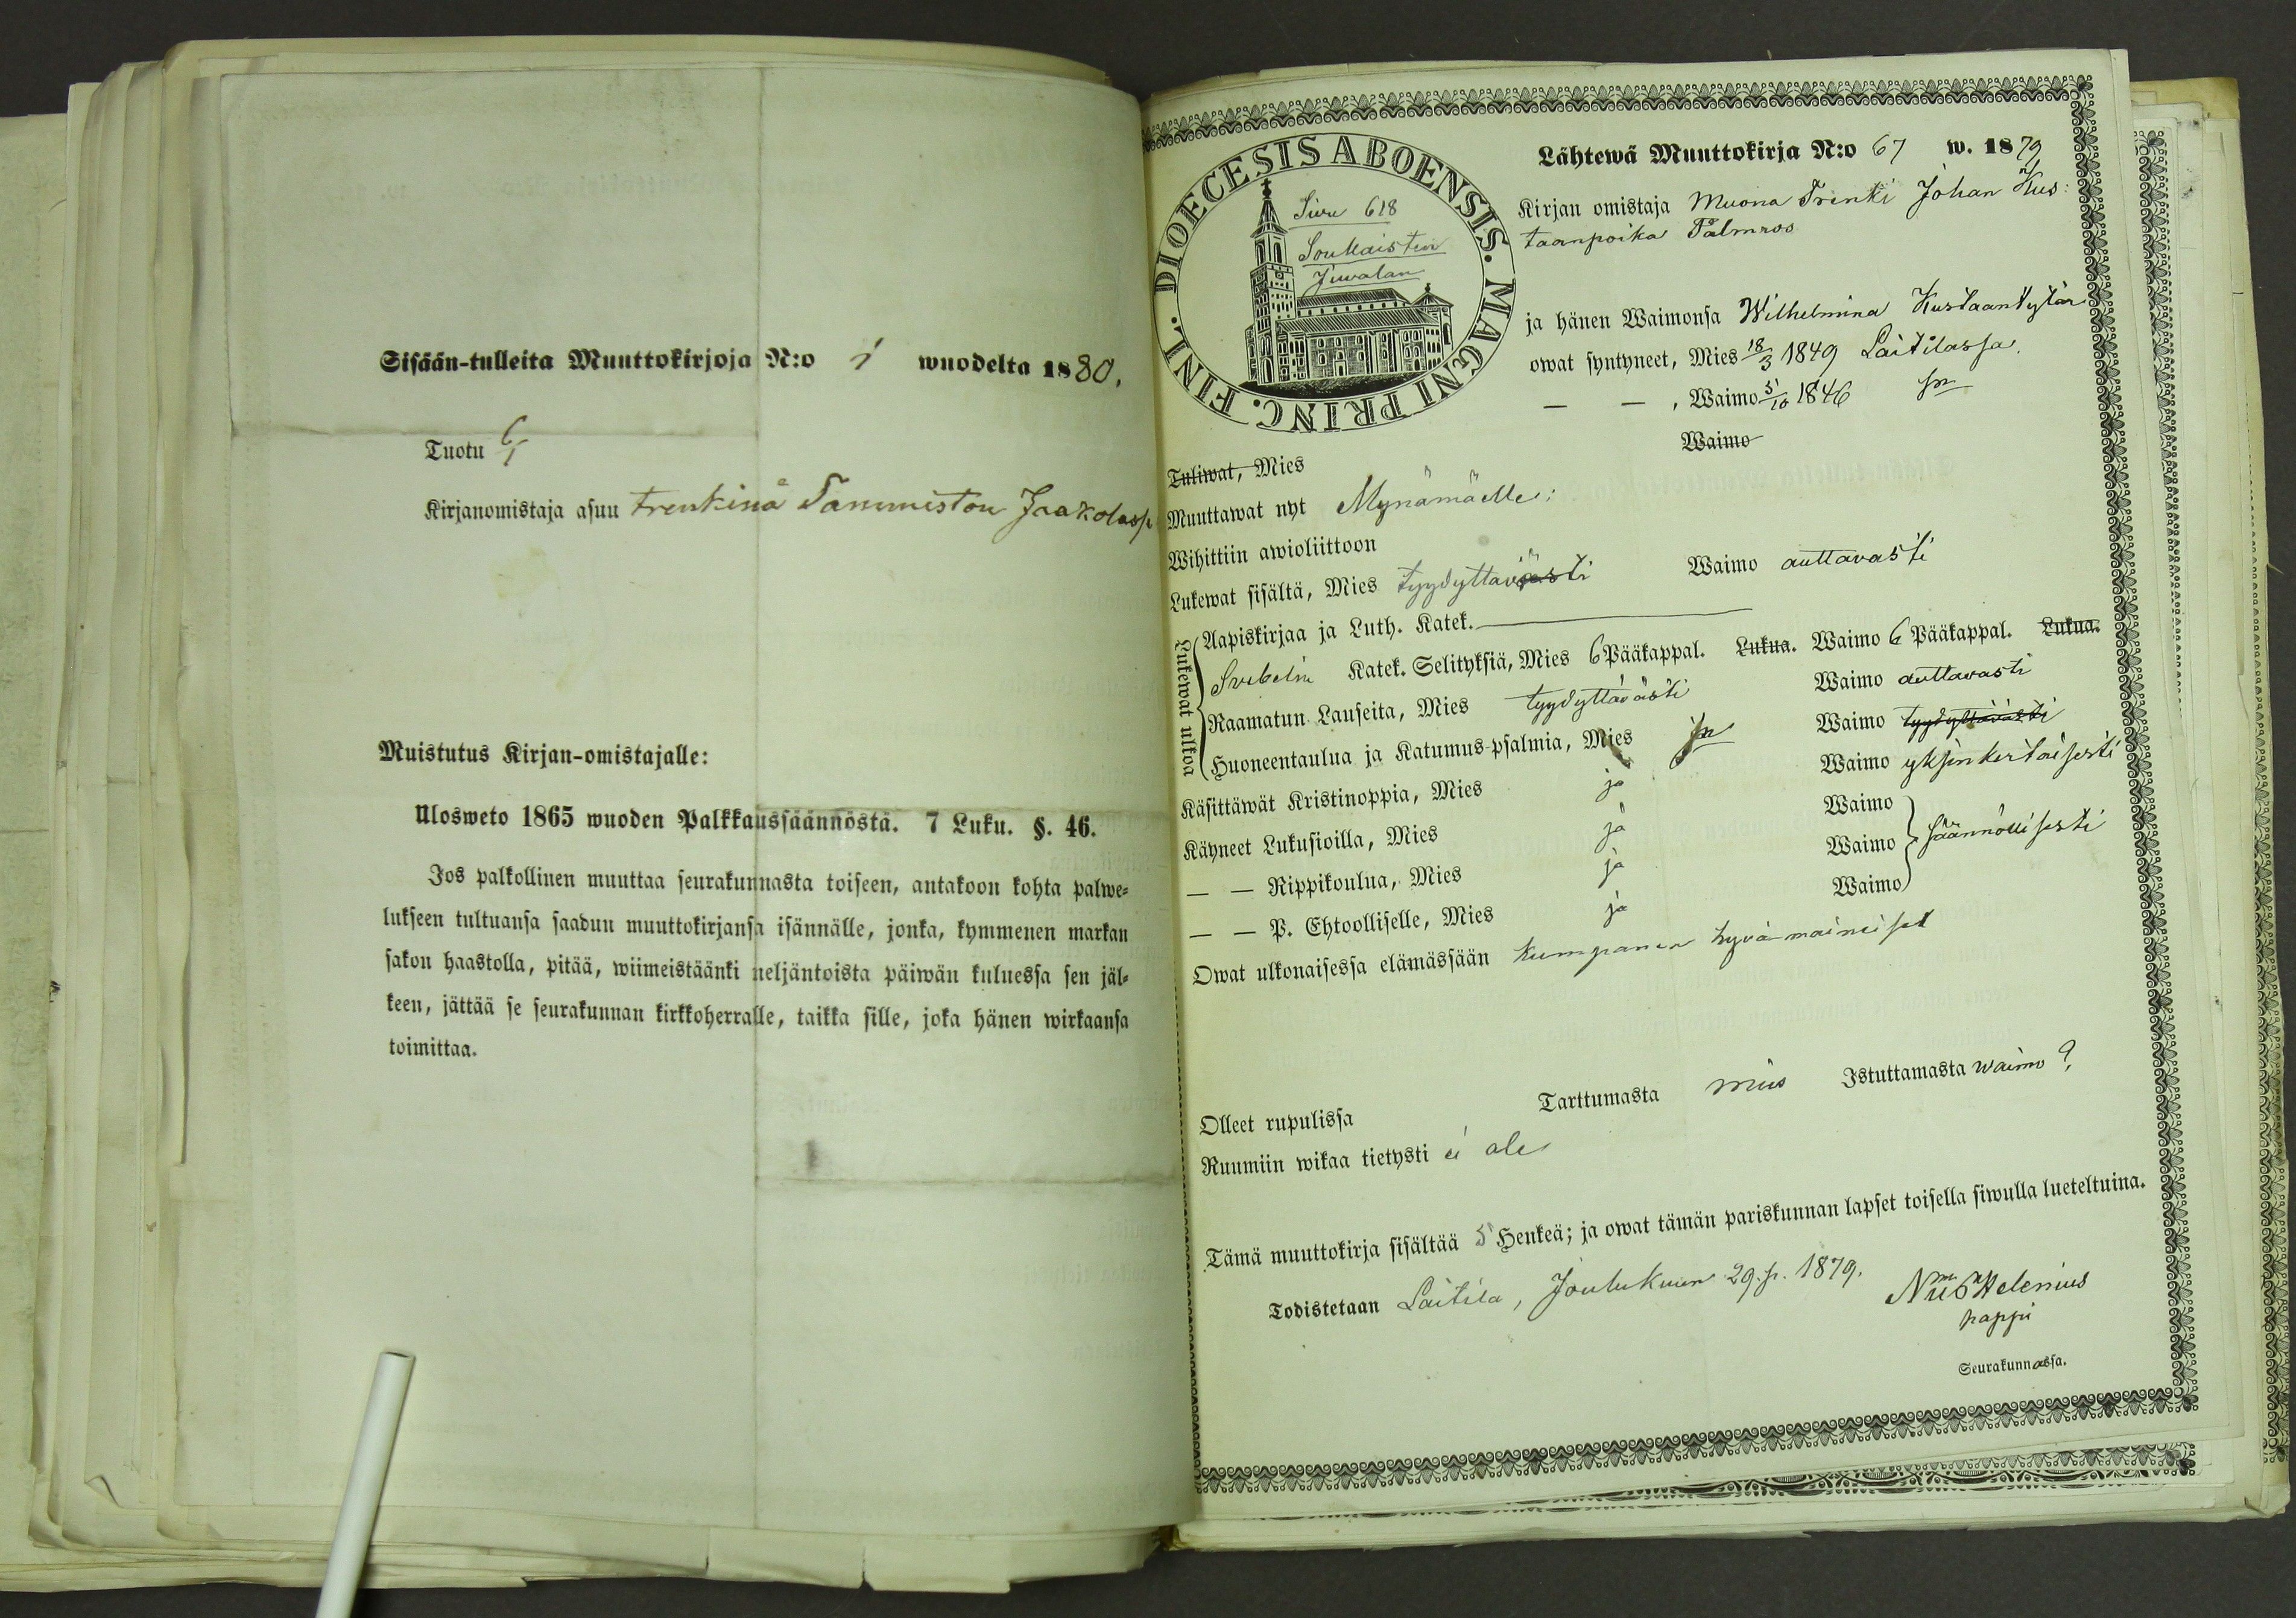 Sisään-tulleita Muuttokirjoja N:o 1 wuodelta 1880.
Tuotu 6/1
Kirjanomistaja asuu trenkinä Tammiston Jaakolassa
Muistutus Kirjan-omistajalle:
Ulosweto 1865 wuoden Palkkaussäännöstä. 7 Luku. §. 46.
Jos palkollinen muuttaa seurakunnasta toiseen, antakoon kohta palwe-
lukseen tultuansa saadun muuttokirjansa isännälle, jonka, kymmenen markan
sakon haastolla, pitää, wiimeistäänki neljäntoista päiwän kuluessa sen jäl-
keen, jättää se seurakunnan kirkkoherralle, taikka sille, joka hänen wirkaansa
toimittaa.
DIOECESIS ABOENSIS. MAGNI PRINC. FINL.
Sivu 618
Soukaisten
Juvalan
Lähtewä Muuttokirja N:o 67 w. 1879
Kirjan omistaja Muona Trenki Johan Kus-
taanpoika Palmroos
ja hänen Waimonsa Wilhelmina Kustaantytär
owat syntyneet, Mies 18/3 1849 Laitilassa.
— — , Waimo 5/10 1846 sn
Tuliwat, Mies Waimo
Muuttawat nyt Mynämäelle:
Wihittiin awioliittoon
Lukewat sisältä, Mies tyydyttäväästi Waimo auttavasti
Lukewat ulkoa
Aapiskirjaa ja Luth. Katek.
Svebelin Katek. Selityksiä, Mies 6 Pääkappal. Lukua. Waimo 6 Pääkappal. Lukua.
Raamatun Lauseita, Mies tyydyttävästi Waimo auttavasti
Huoneentaulua ja Katumus-psalmia, Mies sn Waimo tyydyttävästi
Käsittäwät Kristinoppia, Mies ja Waimo yksinkertaisesti
Käyneet Lukusioilla, Mies ja Waimo
— — Rippikoulua, Mies ja Waimo säännöllisesti
— — P. Ehtoolliselle, Mies ja Waimo
Owat ulkonaisessa elämässään kumpanen hyvämaineiset
Olleet rupulissa Tarttumasta mies Istuttamasta waimo?
Ruumiin wikaa tietysti ei ole
Tämä muuttokirja sisältää 5 Henkeä; ja owat tämän pariskunnan lapset toisella siwulla lueteltuina.
Todistetaan Laitila, Joulukuun 29.p. 1879.
Helenius
pappi
Seurakunnassa.